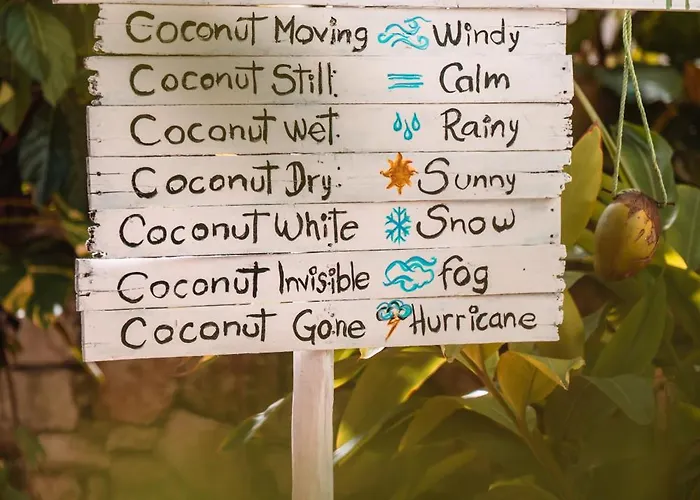 Coconut Moving Windy
Coconut Still: Calm
Coconut wet: Rainy
Coconut Dry: Sunny
Coconut White Snow
Coconut Invisible fog
Coconut Gone Hurricane